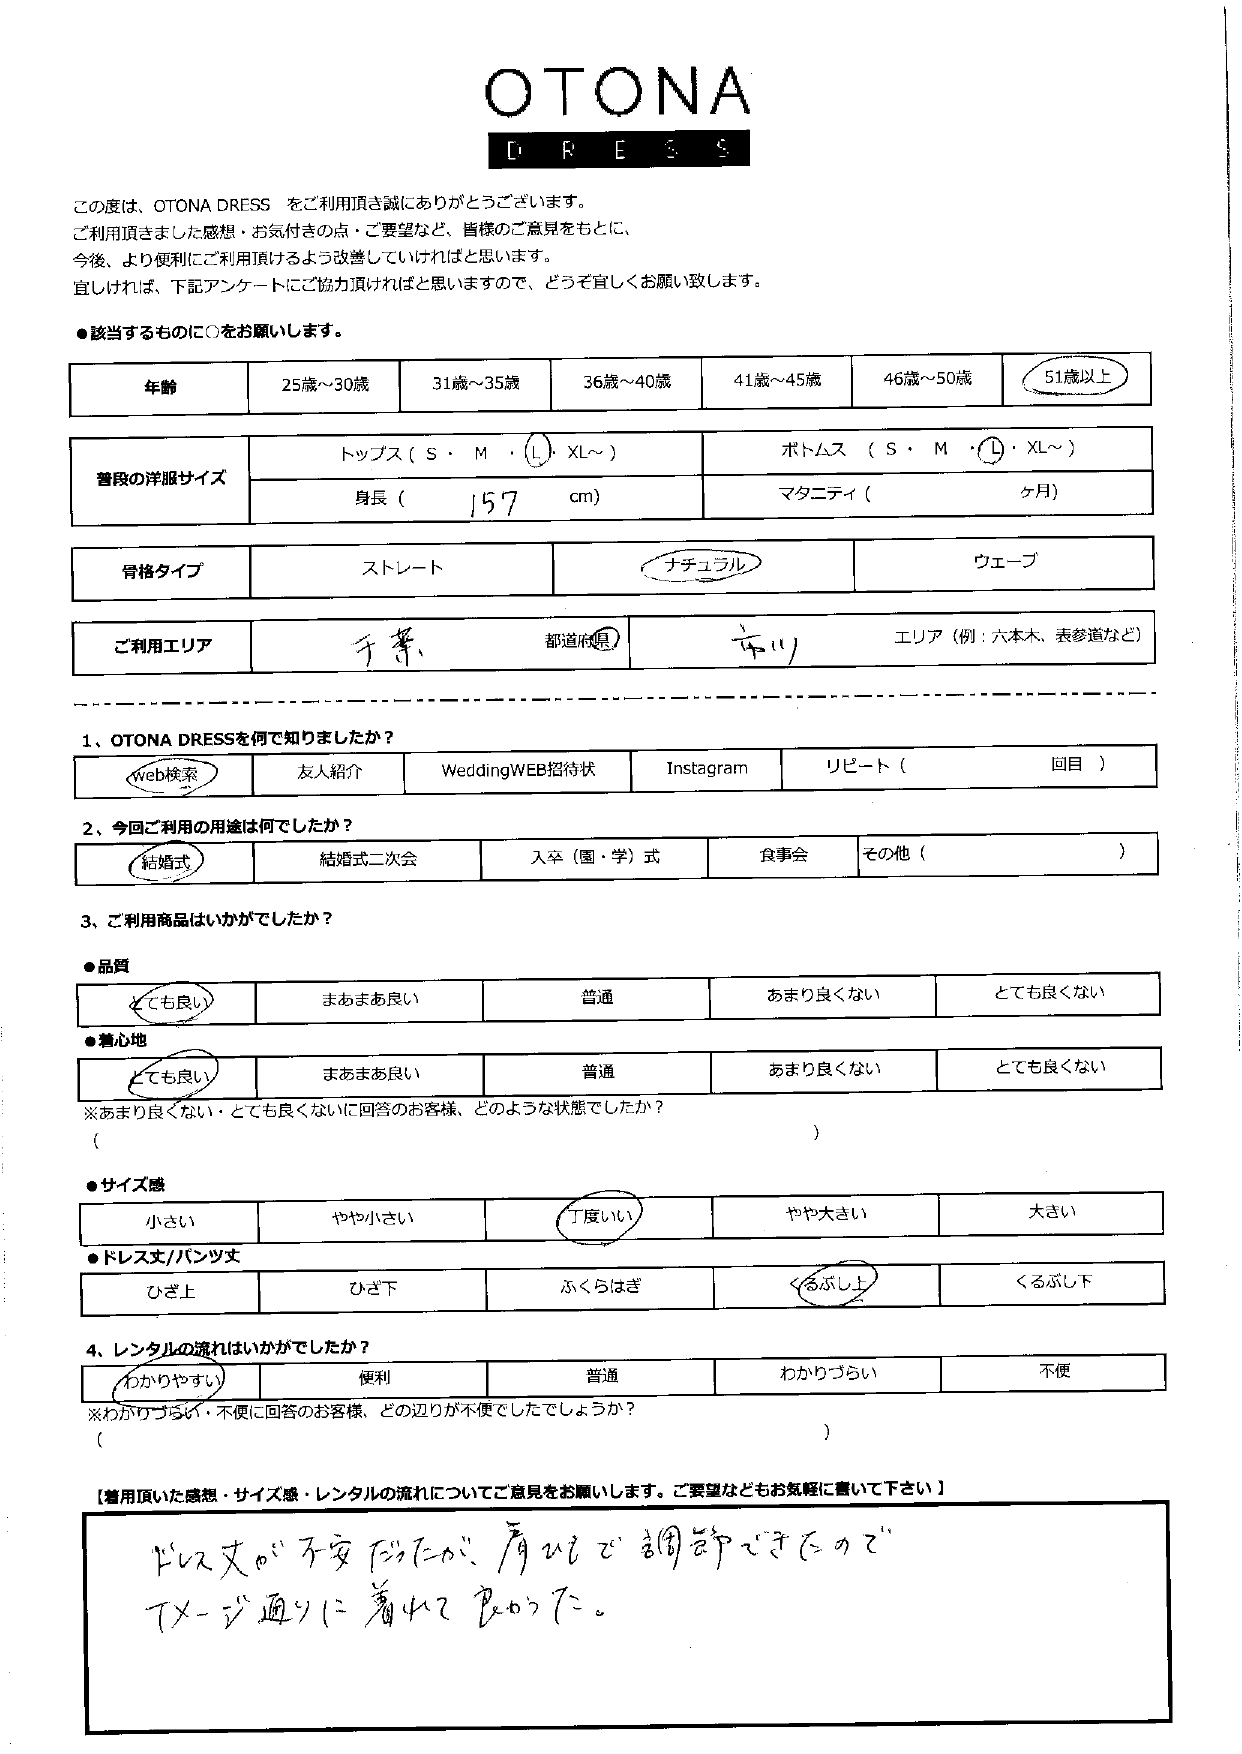 OTONA
DRESS
この度は、OTONA DRESS をご利用頂き誠にありがとうございます。
ご利用頂きました感想・お気付きの点・ご要望など、皆様のご意見をもとに、
今後、より便利にご利用頂けるよう改善していければと思います。
宜しければ、下記アンケートにご協力頂ければと思いますので、どうぞ宜しくお願い致します。
●該当するものに○をお願いします。
年齢 25歳～30歳 31歳～35歳 36歳～40歳 41歳～45歳 46歳～50歳 51歳以上
普段の洋服サイズ
トップス ( S ・ M ・ L ・ XL～ ) ボトムス ( S ・ M ・ L ・ XL～ )
身長 ( 157 cm) マタニティ ( ケ月)
骨格タイプ ストレート ナチュラル ウェーブ
ご利用エリア 千葉 都道府県 市川 エリア（例：六本木、表参道など）
1、OTONA DRESSを何で知りましたか？
web検索 友人紹介 WeddingWEB招待状 Instagram リピート ( 回目 )
2、今回ご利用の用途は何でしたか？
結婚式 結婚式二次会 入卒（園・学）式 食事会 その他 ( )
3、ご利用商品はいかがでしたか？
●品質
とても良い まあまあ良い 普通 あまり良くない とても良くない
●着心地
とても良い まあまあ良い 普通 あまり良くない とても良くない
※あまり良くない・とても良くないに回答のお客様、どのような状態でしたか？
( )
●サイズ感
小さい やや小さい 丁度いい やや大きい 大きい
●ドレス丈/パンツ丈
ひざ上 ひざ下 ふくらはぎ くるぶし上 くるぶし下
4、レンタルの流れはいかがでしたか？
わかりやすい 便利 普通 わかりづらい 不便
※わかりづらい・不便に回答のお客様、どの辺りが不便でしたでしょうか？
( )
【着用頂いた感想・サイズ感・レンタルの流れについてご意見をお願いします。ご要望などもお気軽に書いて下さい】
ドレス丈が不安だったが、肩ひもで調節できたので
イメージ通りに着れて良かった。